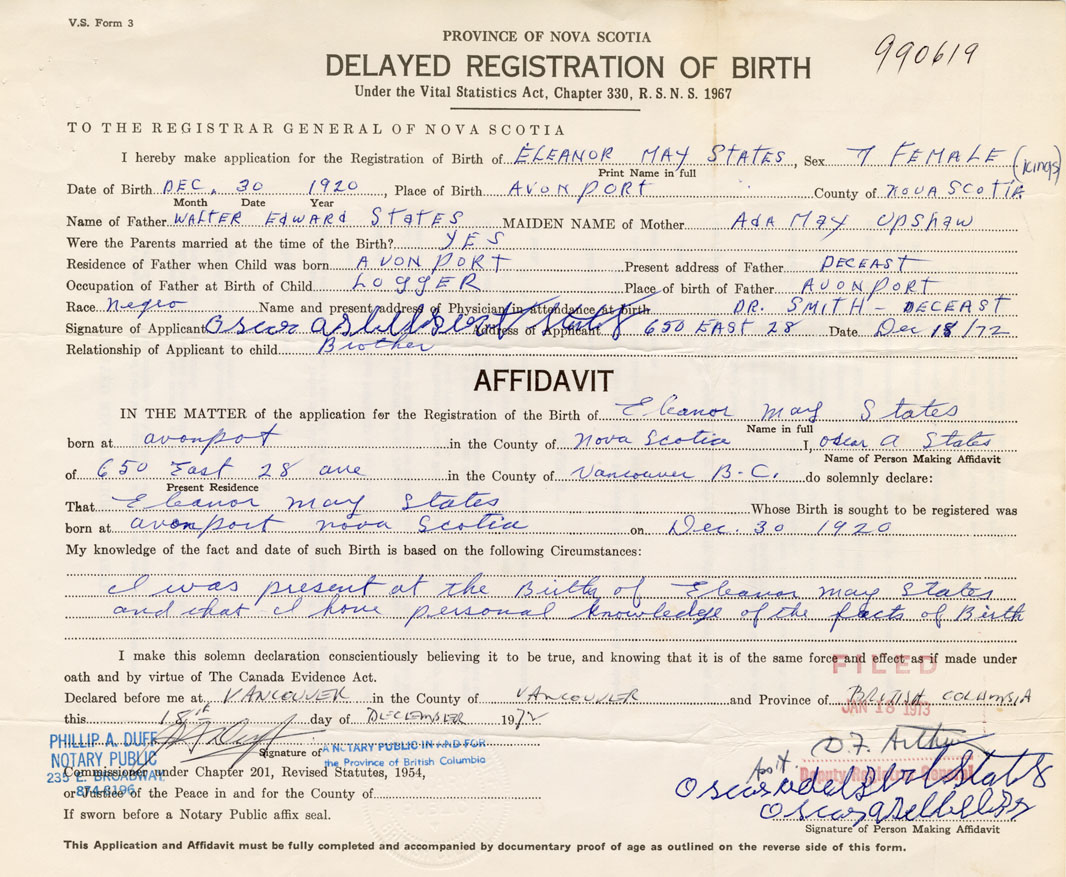 V.S. Form 3
PROVINCE OF NOVA SCOTIA
990619
DELAYED REGISTRATION OF BIRTH
Under the Vital Statistics Act, Chapter 330, R.S.N.S. 1967
TO THE REGISTRAR GENERAL OF NOVA SCOTIA
I hereby make application for the Registration of Birth of ELEANOR MAY STATES, Sex FEMALE (Kings)
Print Name in full
Date of Birth DEC. 30 1920, Place of Birth AVONPORT County of NOVA SCOTIA
Month Date Year
Name of Father WALTER EDWARD STATES MAIDEN NAME of Mother ADA MAY UPSHAW
Were the Parents married at the time of the Birth? YES
Residence of Father when Child was born AVONPORT Present address of Father DECEAST
Occupation of Father at Birth of Child LOGGER Place of birth of Father AVONPORT
Race Negro Name and present address of Physician in attendance at birth DR. SMITH - DECEAST
Signature of Applicant Oscar States Address of Applicant 650 EAST 28 Date Dec 18/72
Relationship of Applicant to child Brother
AFFIDAVIT
IN THE MATTER of the application for the Registration of the Birth of Eleanor may States
Name in full
born at avonpot in the County of Nova Scotia I, oscar A States
Name of Person Making Affidavit
of 650 East 28 ave in the County of Vancouver B-C. do solemnly declare:
Present Residence
That Eleanor may States Whose Birth is sought to be registered was
born at avonport nova Scotia on Dec. 30 1920
My knowledge of the fact and date of such Birth is based on the following Circumstances:
I was present at the Birth of Eleanor may States
and that I have personal knowledge of the facts of Birth
I make this solemn declaration conscientiously believing it to be true, and knowing that it is of the same force and effect as if made under
oath and by virtue of The Canada Evidence Act.
FILED
Declared before me at VANCOUVER in the County of VANCOUVER and Province of BRITISH COLUMBIA
JAN 18 1973
this 18th day of DECEMBER 1972
PHILLIP A. DUFF
NOTARY PUBLIC
235 E. BROADWAY
874-8196
Signature of
A NOTARY PUBLIC IN AND FOR
the Province of British Columbia
D.F. Arthur
Asst. Deputy Registrar General
Commissioner under Chapter 201, Revised Statutes, 1954,
or Justice of the Peace in and for the County of
If sworn before a Notary Public affix seal.
Signature of Person Making Affidavit
This Application and Affidavit must be fully completed and accompanied by documentary proof of age as outlined on the reverse side of this form.